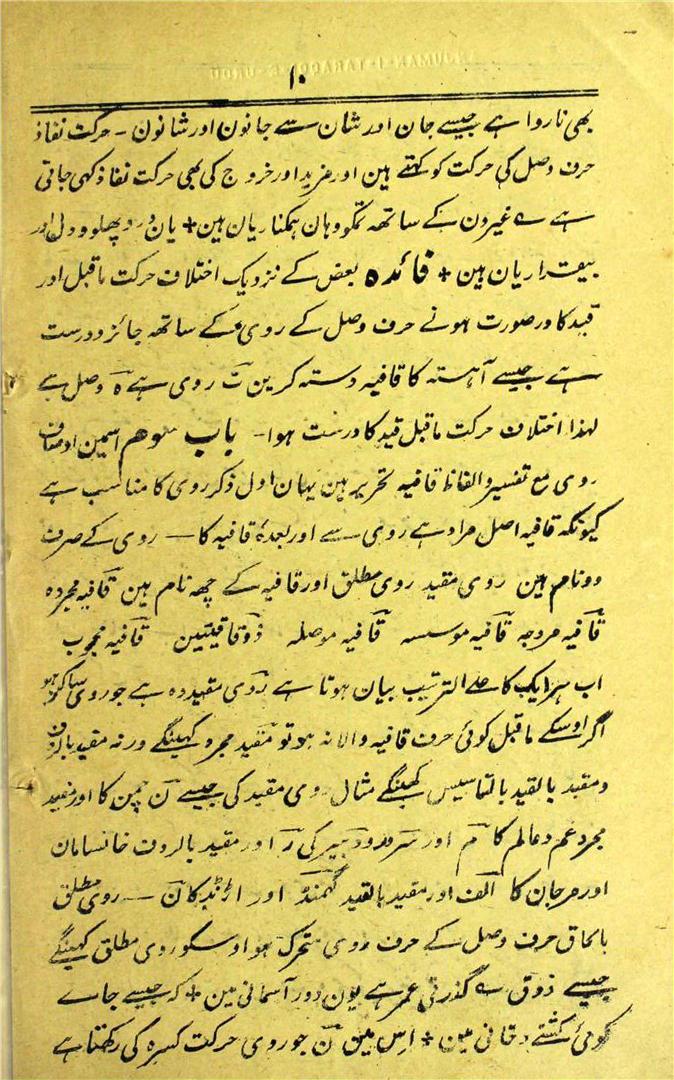 ۱۰
بھی ناروا ہے جیسے جان اور شان سے جانون اور شانون - حرکت نفاذ
حرف وصل کی حرکت کو کہتے ہین اور مزید اور خروج کی بھی حرکت نفاذ کہی جاتی
ہے ے غیرون کے ساتھہ تمکو وہان ہمکناریان ہین + یان درد پھلو و دل اور
بیقراریان ہین + فائدہ بعض کے نزدیک اختلاف حرکت ماقبل اور
قید کا در صورت ہونے حرف وصل کے روی کے ساتھ جائز و درست
ہے جیسے آہستہ کا قافیہ دستہ کرین ت روی ہے ہ وصل ہے
لہذا اختلاف حرکت ماقبل قید کا درست ہوا - باب سوم اسمین اوصاف
روی مع تفسیر والفاظ قافیہ تحریر ہین یہان اول ذکر روی کا مناسب ہے
کیونکہ قافیہ اصل مراد ہے روی سے اور بعدہٗ قافیہ کا — روی کے صرف
دو نام ہین روی مقید روی مطلق اور قافیہ کے چھہ نام ہین قافیہ مجردہ
قافیہ مردجہ قافیہ موسسہ قافیہ موصلہ ذوقافیتین قافیہ محجوب
اب ہر ایک کا علے الترتیب بیان ہوتا ہے روی مقید وہ ہے جو روی ساکن ہو
اگر اوسکے ماقبل کوئی حرف قافیہ والا نہ ہو تو مقید مجرد کہینگے ورنہ مقید بالردف
و مقید بالقید بالتاسیس کہینگے مثال روی مقید کی جیسے ن چمن کا اور مقید
مجرد غم و عالم کا م اور سرمد و دبیر کی ر اور مقید بالردف خانسامان
اور مرجان کا الف اور مقید بالقید گھمنڈ اور ارنڈ کا ن — روی مطلق
بالحاق حرف وصل کے حرف روی متحرک ہو اوسکو روی مطلق کہینگے
جیسے ذوق ے گذرتی عمر ہے یون دور آسمانی مین + کہ جیسے جاے
کوئی کشتے دخانی مین + اس مین ن جو روی حرکت کسرہ کی رکھتا ہے